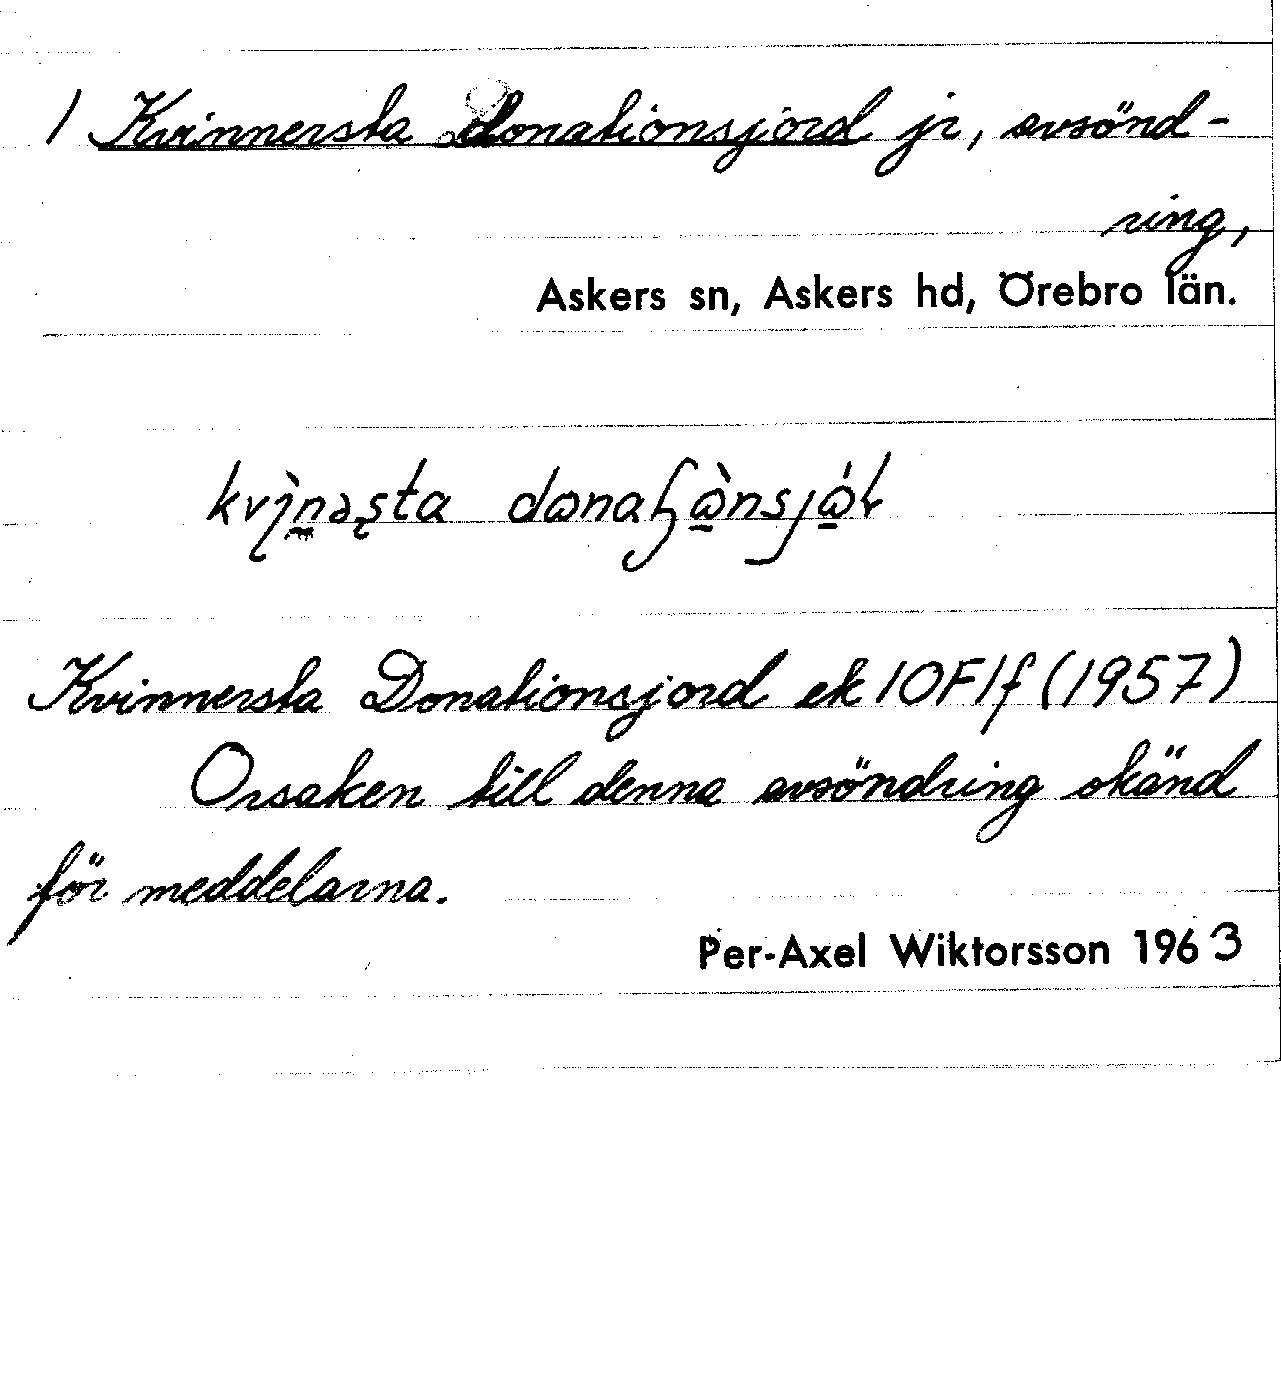 1 Kvinnersta Donationsjord jr, avsönd-
ring,
Askers sn, Askers hd, Örebro län.
Kvinnersta Donationsjord ek 10F1f (1957)
Orsaken till denna avsöndring okänd
för meddelarna.
Per-Axel Wiktorsson 1963